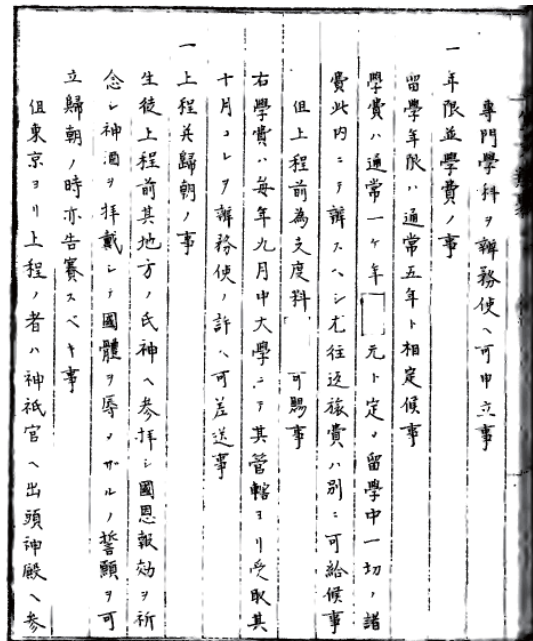 專門學科ヲ辨務使ヘ可申立事
一年限並學費ノ事
留學年限ハ通常五年ト相定候事
學費ハ通常一ケ年 元ト定メ留學中一切ノ諸
費此内ニテ辨スヘシ尤往返旅費ハ別ニ可給候事
但上程前為支度料 可賜事
右學費ハ毎年九月中大學ニテ其管轄ヨリ受取其
十月コレヲ辨務使ノ許ヘ可差送事
一上程并歸朝ノ事
生徒上程前其地方ノ氏神ヘ參拝シ國恩報効ヲ祈
念シ神酒ヲ拝戴シテ國體ヲ辱メザルノ誓願ヲ可
立歸朝ノ時亦告賽スベキ事
但東京ヨリ上程ノ者ハ神祇官ヘ出頭神殿ヘ參